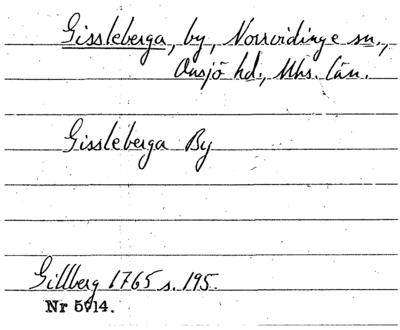 Gissleberga, by, Norrvidinge sn.,
Onsjö hd., Mhs. län.
Gissleberga By
Gillberg 1765 s. 195.
Nr 5914.